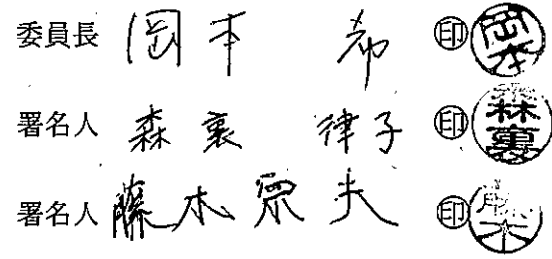 委員長 岡本 希 ㊞ 岡本
署名人 森裏 律子 ㊞ 森裏
署名人 藤木宗夫 ㊞ 藤木